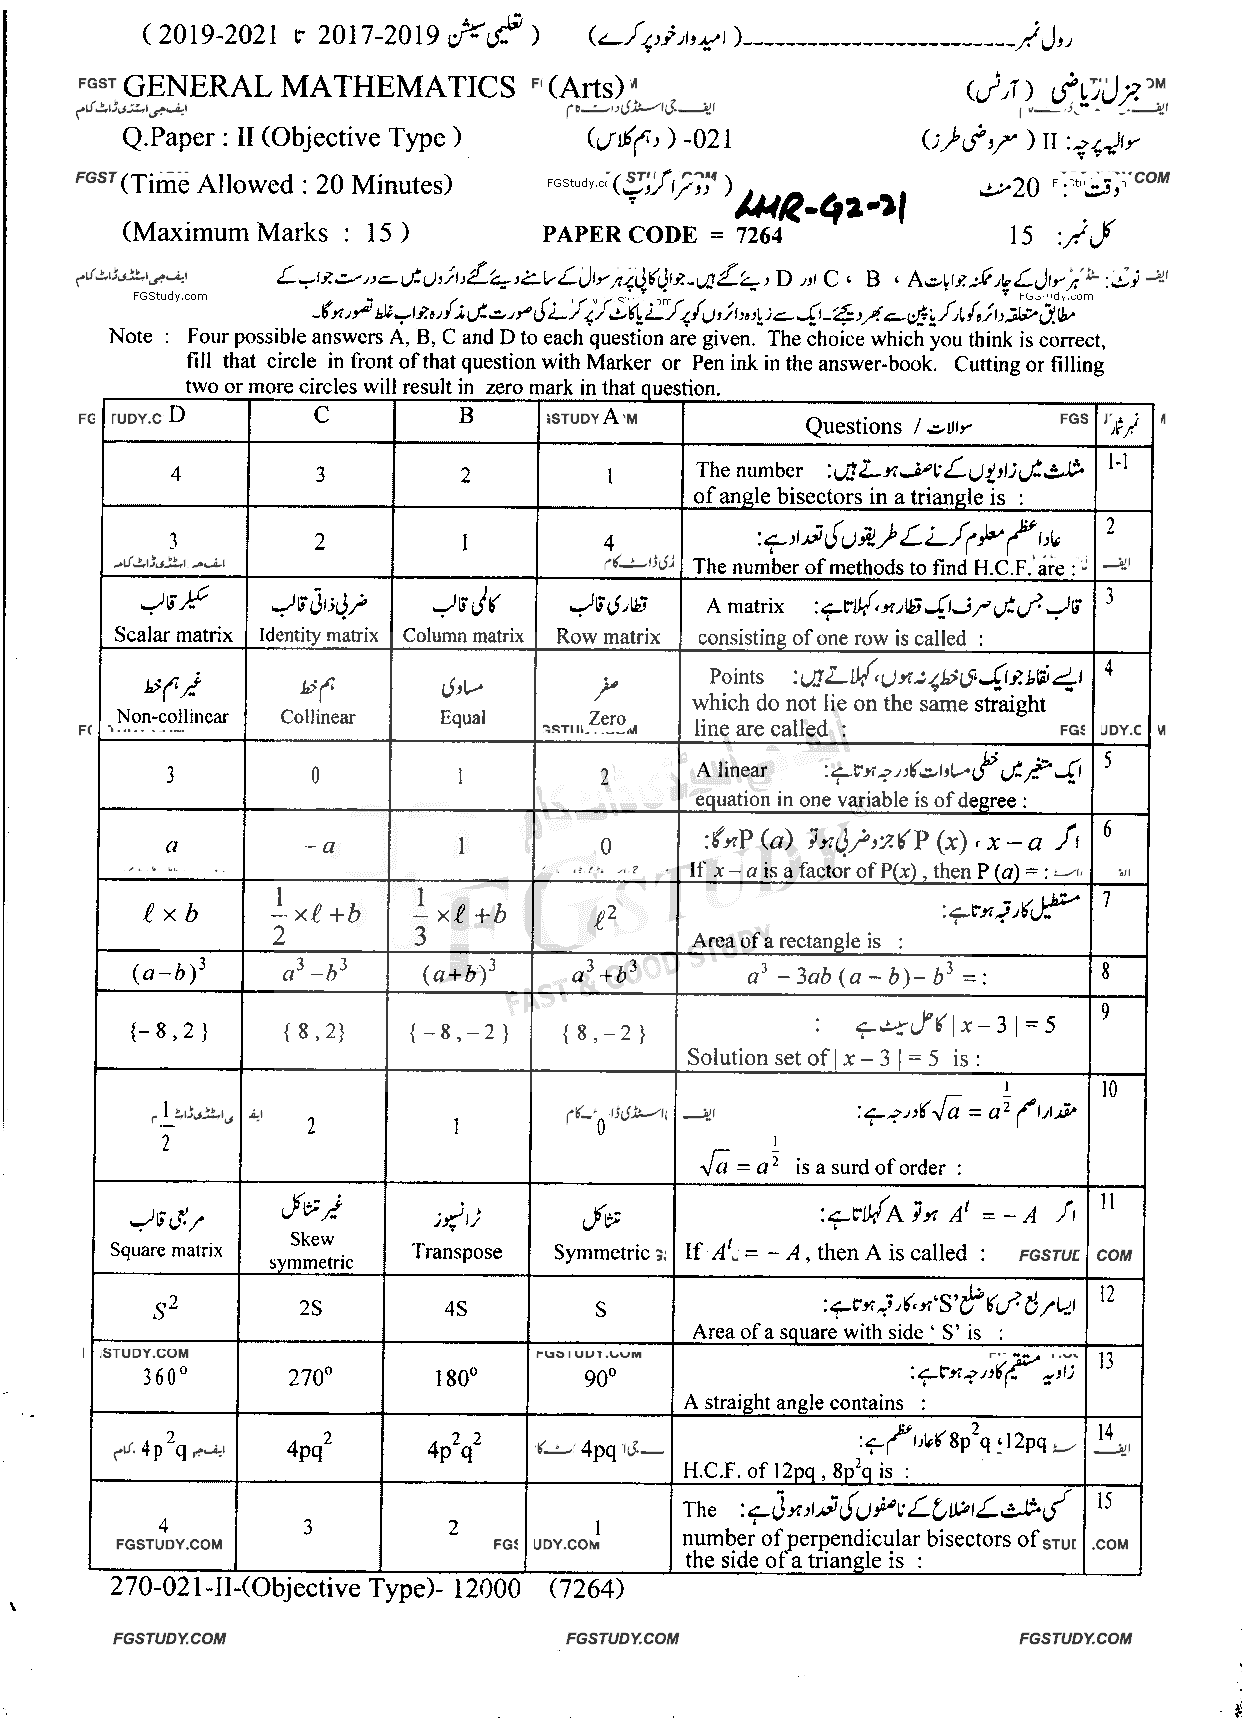 رول نمبر ـــــــــــــــ (امیدوار خود پر کرے) (تعلیمی سیشن 2017-2019 تا 2019-2021)
GENERAL MATHEMATICS (Arts) جنرل ریاضی (آرٹس)
Q.Paper : II (Objective Type) 021- (دہم کلاس) سوالیہ پرچہ: II (معروضی طرز)
(Time Allowed : 20 Minutes) (دوسرا گروپ) وقت: 20 منٹ
LHR-G2-21
(Maximum Marks : 15) PAPER CODE = 7264 کل نمبر: 15
نوٹ: ہر سوال کے چار ممکنہ جوابات A ، B ، C اور D دیئے گئے ہیں۔ جوابی کاپی پر ہر سوال کے سامنے دیئے گئے دائروں میں سے درست جواب کے
FGStudy.com
مطابق متعلقہ دائرہ کو مارکر یا پین سے بھر دیجئے۔ ایک سے زیادہ دائروں کو پر کرنے یا کاٹ کر پر کرنے کی صورت میں مذکورہ جواب غلط تصور ہوگا۔
Note : Four possible answers A, B, C and D to each question are given. The choice which you think is correct,
fill that circle in front of that question with Marker or Pen ink in the answer-book. Cutting or filling
two or more circles will result in zero mark in that question.
D C B A Questions / سوالات نمبر شمار
4 3 2 1 The number مثلث میں زاویوں کے ناصف ہوتے ہیں: 1-1
of angle bisectors in a triangle is :
3 2 1 4 عاداعظم معلوم کرنے کے طریقوں کی تعداد ہے: 2
The number of methods to find H.C.F. are :
سکیلر قالب ضربی ذاتی قالب کالمی قالب قطاری قالب A matrix قالب جس میں صرف ایک قطار ہو، کہلاتا ہے: 3
Scalar matrix Identity matrix Column matrix Row matrix consisting of one row is called :
غیر ہم خط ہم خط مساوی صفر Points ایسے نقاط جو ایک ہی خط پر نہ ہوں، کہلاتے ہیں: 4
Non-collinear Collinear Equal Zero which do not lie on the same straight
line are called :
3 0 1 2 A linear ایک متغیر میں خطی مساوات کا درجہ ہوتا ہے: 5
equation in one variable is of degree :
a - a 1 0 اگر x – a ، P (x) کا جزو ضربی ہو تو P (a) ہوگا: 6
If x – a is a factor of P(x) , then P (a) = :
ℓ × b 1/2 ×ℓ +b 1/3 ×ℓ +b ℓ² مستطیل کا رقبہ ہوتا ہے: 7
Area of a rectangle is :
(a–b)³ a³ –b³ (a+b)³ a³ +b³ a³ – 3ab (a – b) – b³ = : 8
{– 8 , 2 } { 8 , 2} { –8 , –2 } { 8 , –2 } | x – 3 | = 5 کا حل سیٹ ہے : 9
Solution set of | x – 3 | = 5 is :
1/2 2 1 0 مقدار اصم √a = a^(1/2) کا درجہ ہے: 10
√a = a^(1/2) is a surd of order :
مربعی قالب غیر متشاکل ٹرانسپوز متشاکل اگر Aᵗ = – A ہو تو A کہلاتا ہے: 11
Square matrix Skew symmetric Transpose Symmetric If Aᵗ = – A , then A is called :
S² 2S 4S S ایسا مربع جس کا ضلع ‘S’ ہو، کا رقبہ ہوتا ہے: 12
Area of a square with side ‘ S’ is :
360° 270° 180° 90° زاویہ مستقیم کا درجہ ہوتا ہے: 13
A straight angle contains :
4p²q 4pq² 4p²q² 4pq 12pq ، 8p²q کا عاداعظم ہے: 14
H.C.F. of 12pq , 8p²q is :
4 3 2 1 The کسی مثلث کے اضلاع کے ناصفوں کی تعداد ہوتی ہے: 15
number of perpendicular bisectors of
the side of a triangle is :
270-021-II-(Objective Type)- 12000 (7264)
FGSTUDY
FAST & GOOD STUDY
FGSTUDY.COM FGSTUDY.COM FGSTUDY.COM